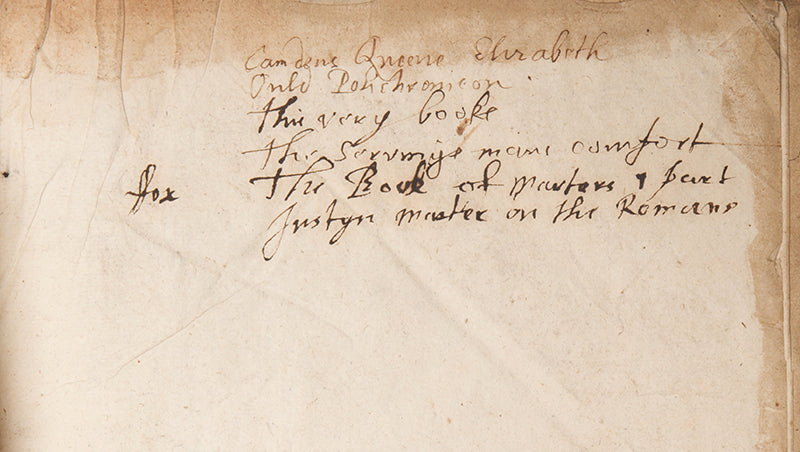 Camdens Queene Elizabeth
Ould Polichronicon
this very booke
the servings mans comfort
ffox The Book of Marters 1 part
Justyn Marter on the Romans